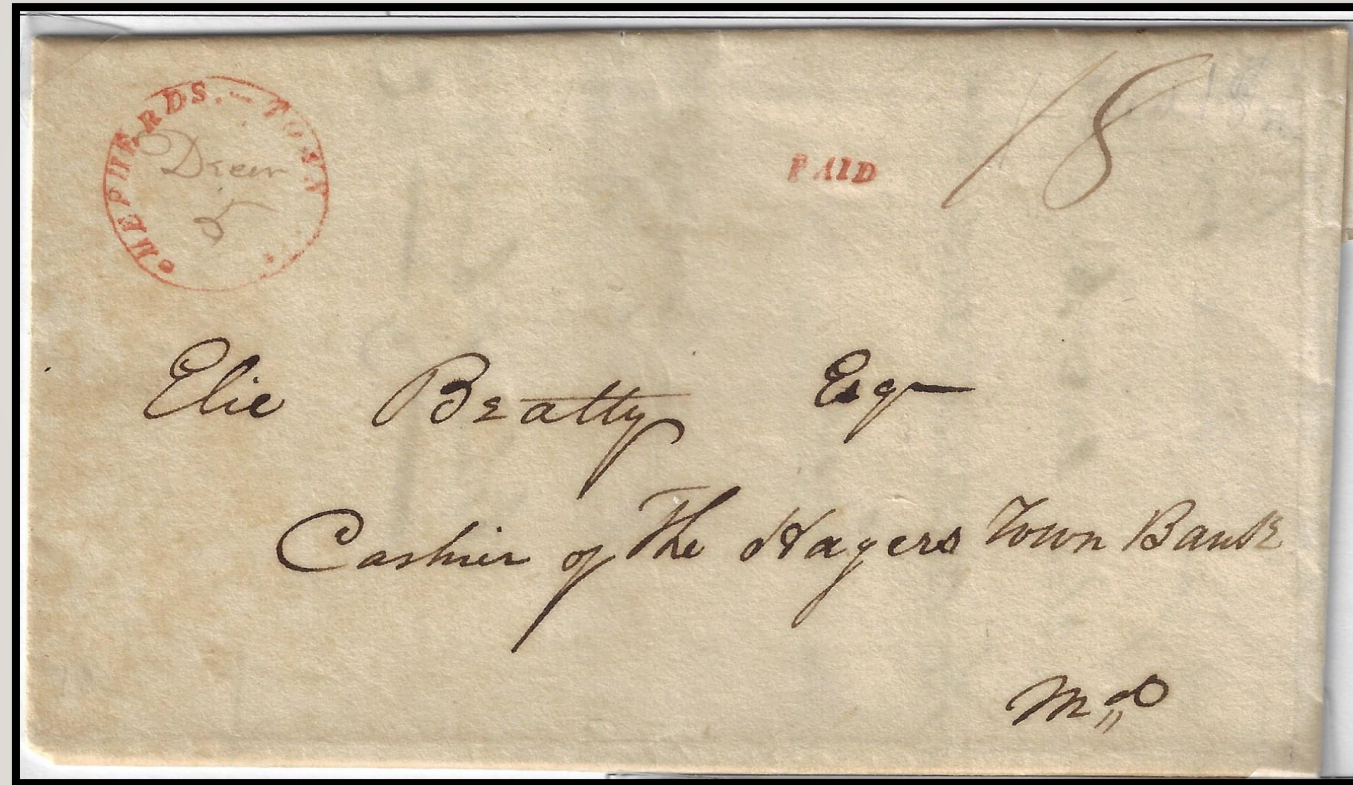 SHEPHERDS.-TOWN
5
PAID
18
Elie Beatty Esqr
Cashier of The Hagers Town Bank
Md